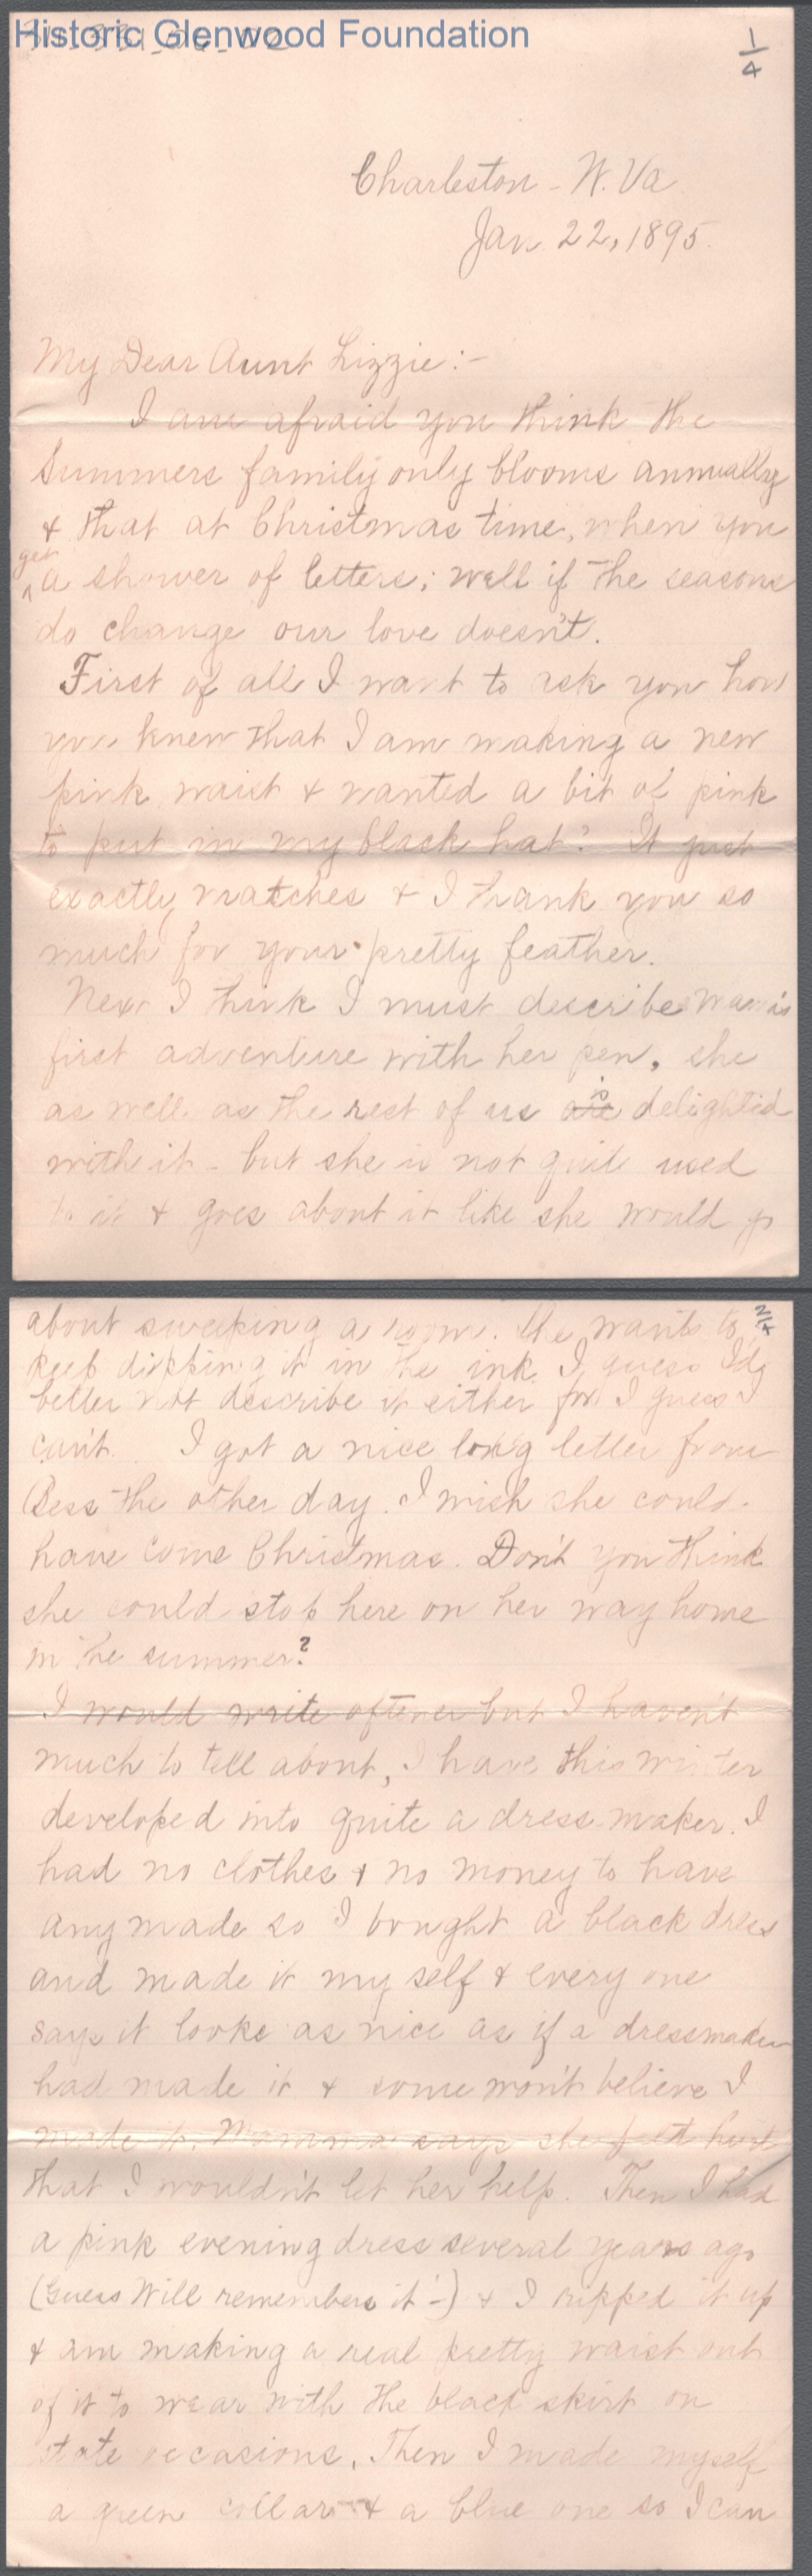 Historic Glenwood Foundation
1/4
Charleston - W. Va
Jan. 22, 1895.
My Dear Aunt Lizzie:-
I am afraid you think the
Summers family only blooms annually
& that at Christmas time, when you
get
^ a shower of letters; well if the seasons
do change our love doesn't.
First of all I want to ask you how
you knew that I am making a new
pink waist & wanted a bit of pink
to put in my black hat? It just
exactly matches & I thank you so
much for your pretty feather.
Next I think I must describe Mama's
first adventure with her pen, she
is
as well as the rest of us are delighted
with it - but she is not quite used
to it & goes about it like she would go
2/4
about sweeping a room. She wants to
keep dipping it in the ink. I guess I'd
better not describe it either for I guess I
can't. I got a nice long letter from
Bess the other day. I wish she could
have come Christmas. Don't you think
she could stop here on her way home
in the summer?
I would write oftener but I haven't
much to tell about, I have this winter
developed into quite a dress-maker. I
had no clothes & no money to have
any made so I bought a black dress
and made it my self & every one
says it looks as nice as if a dressmaker
had made it & some won't believe I
made it. Mamma says she felt hurt
that I wouldn't let her help. Then I had
a pink evening dress several years ago
(Guess Will remembers it -) & I ripped it up
& am making a real pretty waist out
of it to wear with the black skirt on
state occasions. Then I made myself
a green collar & a blue one so I can